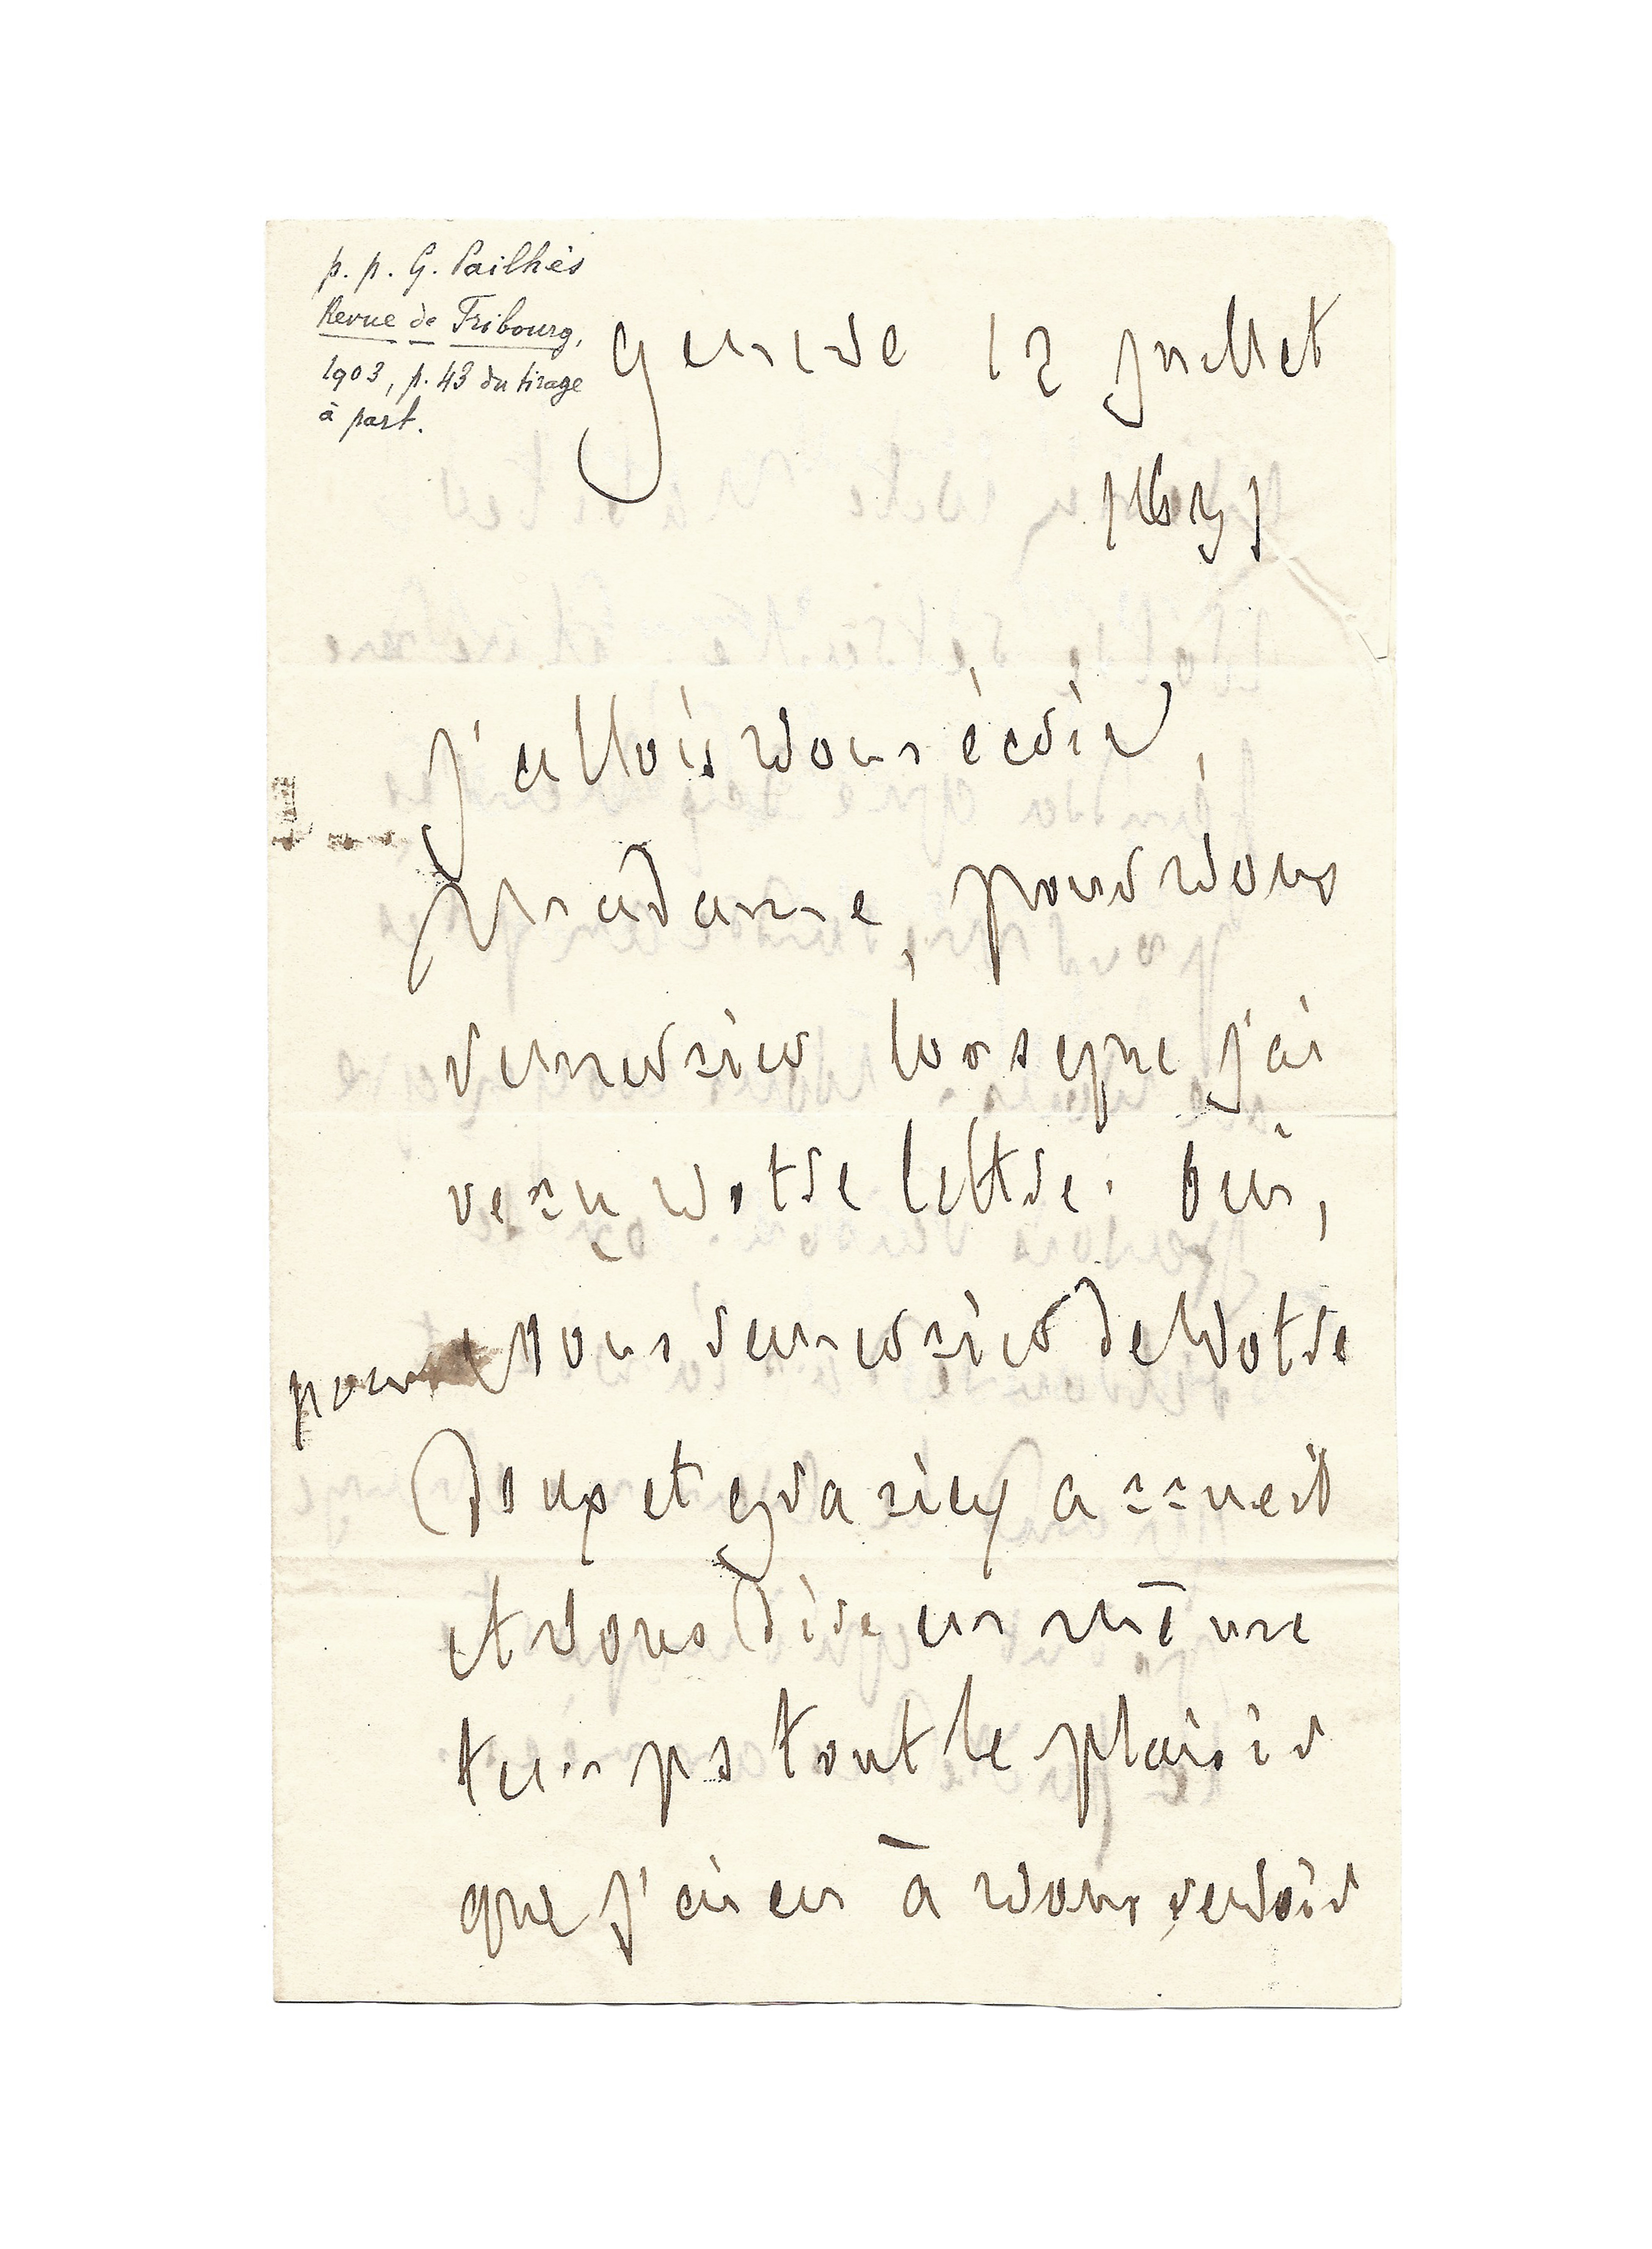 p. p. G. Pailhès
Revue de Fribourg,
1903, p. 43 du tirage
à part.
Genève 12 juillet
1831
J'allois vous écrire,
Madame, pour vous
remercier lorsque j'ai
reçu votre lettre. Oui,
pour vous remercier de votre
doux et gracieux accueil
et vous dire en même
temps tout le plaisir
que j'ai eu à vous revoir